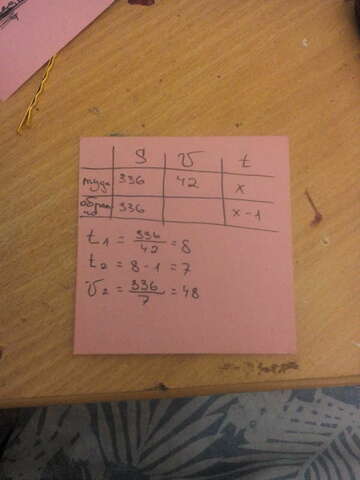 S v t
туда 336 42 x
обрат
но 336 x - 1
t1 = 336/42 = 8
t2 = 8 - 1 = 7
v2 = 336/7 = 48